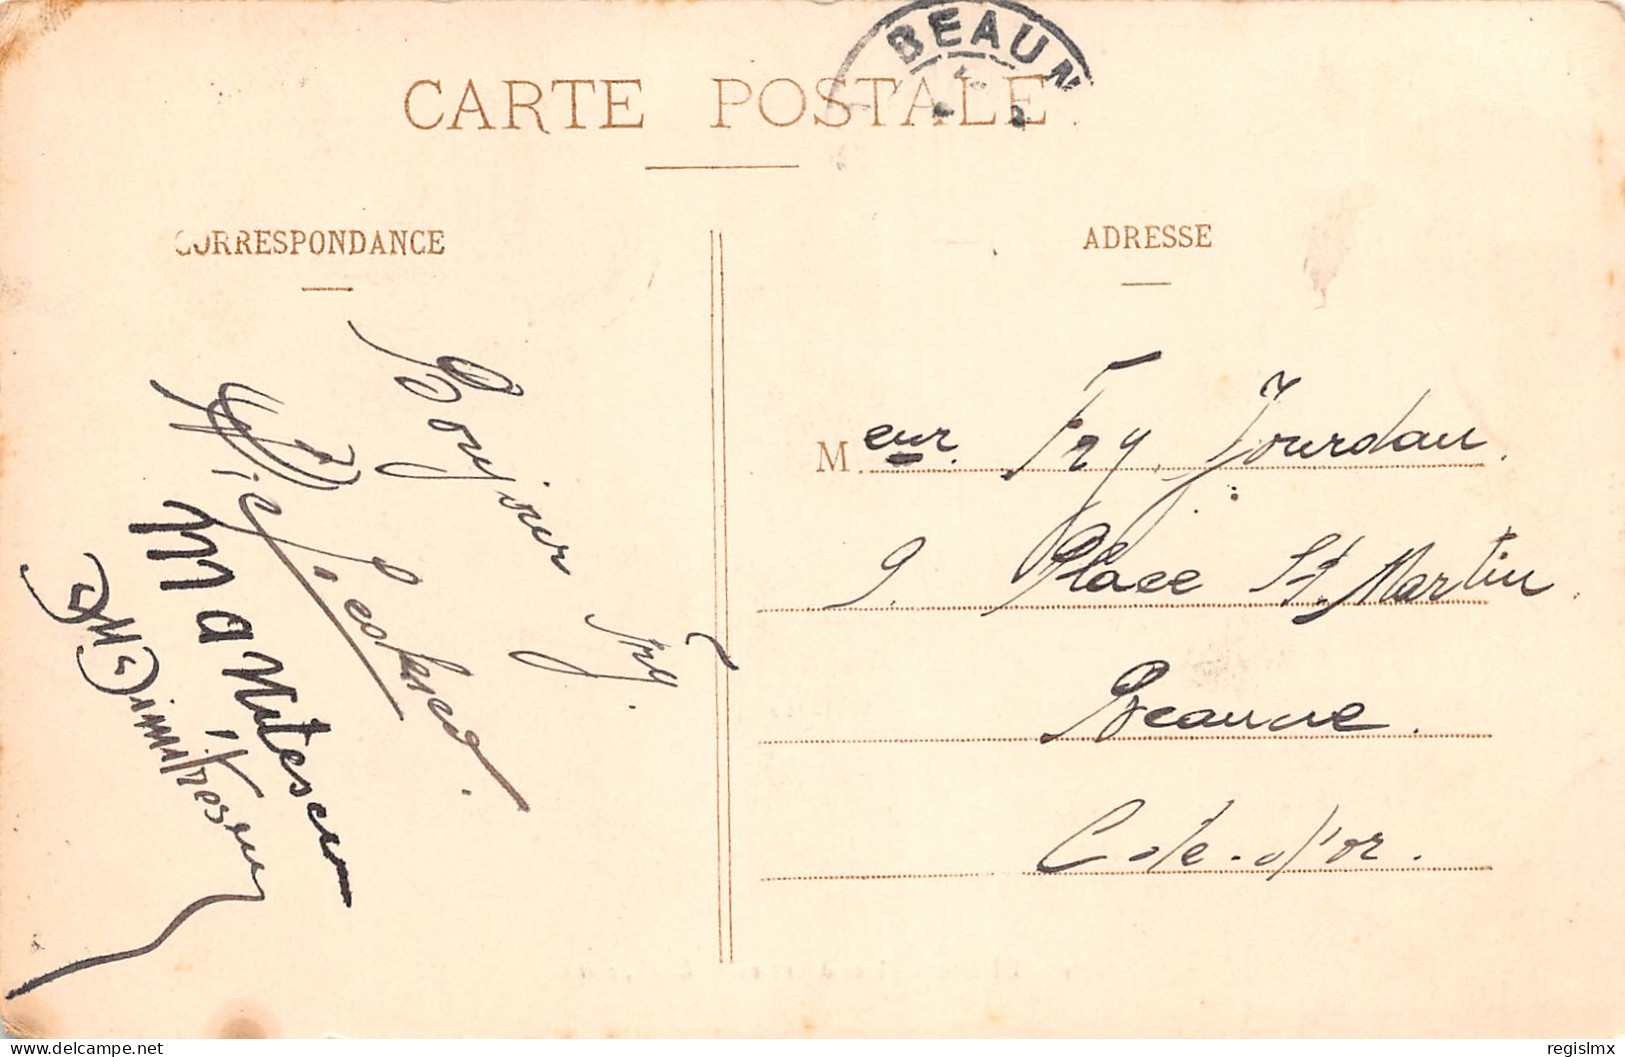 BEAUN
CARTE POSTALE
CORRESPONDANCE
ADRESSE
Bonjour Fry.
Manutescu
Dimitrescu
Meur. Fry Jourdan.
9. Place St. Martin.
Beaune.
Côte-d'or.
delcampe.net
regislmx